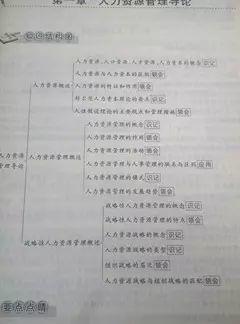 第一章 人力资源管理导论
知识结构图
人力资源、人口资源、人才资源、人力资本的概念 识记
人力资源与人力资本的区别 领会
人力资源概述 人力资源的特征和作用 领会
舒尔茨人力资本理论的要点 识记
人性假设理论的主要观点和管理措施 领会
人力资源管理的概念 识记
人力资源管理的作用 领会
人力资源管理的活动 领会
人力资源管理导论 人力资源管理概述 人力资源管理与人事管理的联系与区别 应用
人力资源管理的模式 识记
人力资源管理的发展趋势 领会
战略性人力资源管理的概念 识记
战略性人力资源管理的特点 领会
人力资源战略的概念 识记
战略性人力资源管理概述 人力资源战略的类型 识记
组织战略的层次 领会
人力资源战略与组织战略的匹配 领会
要点点睛